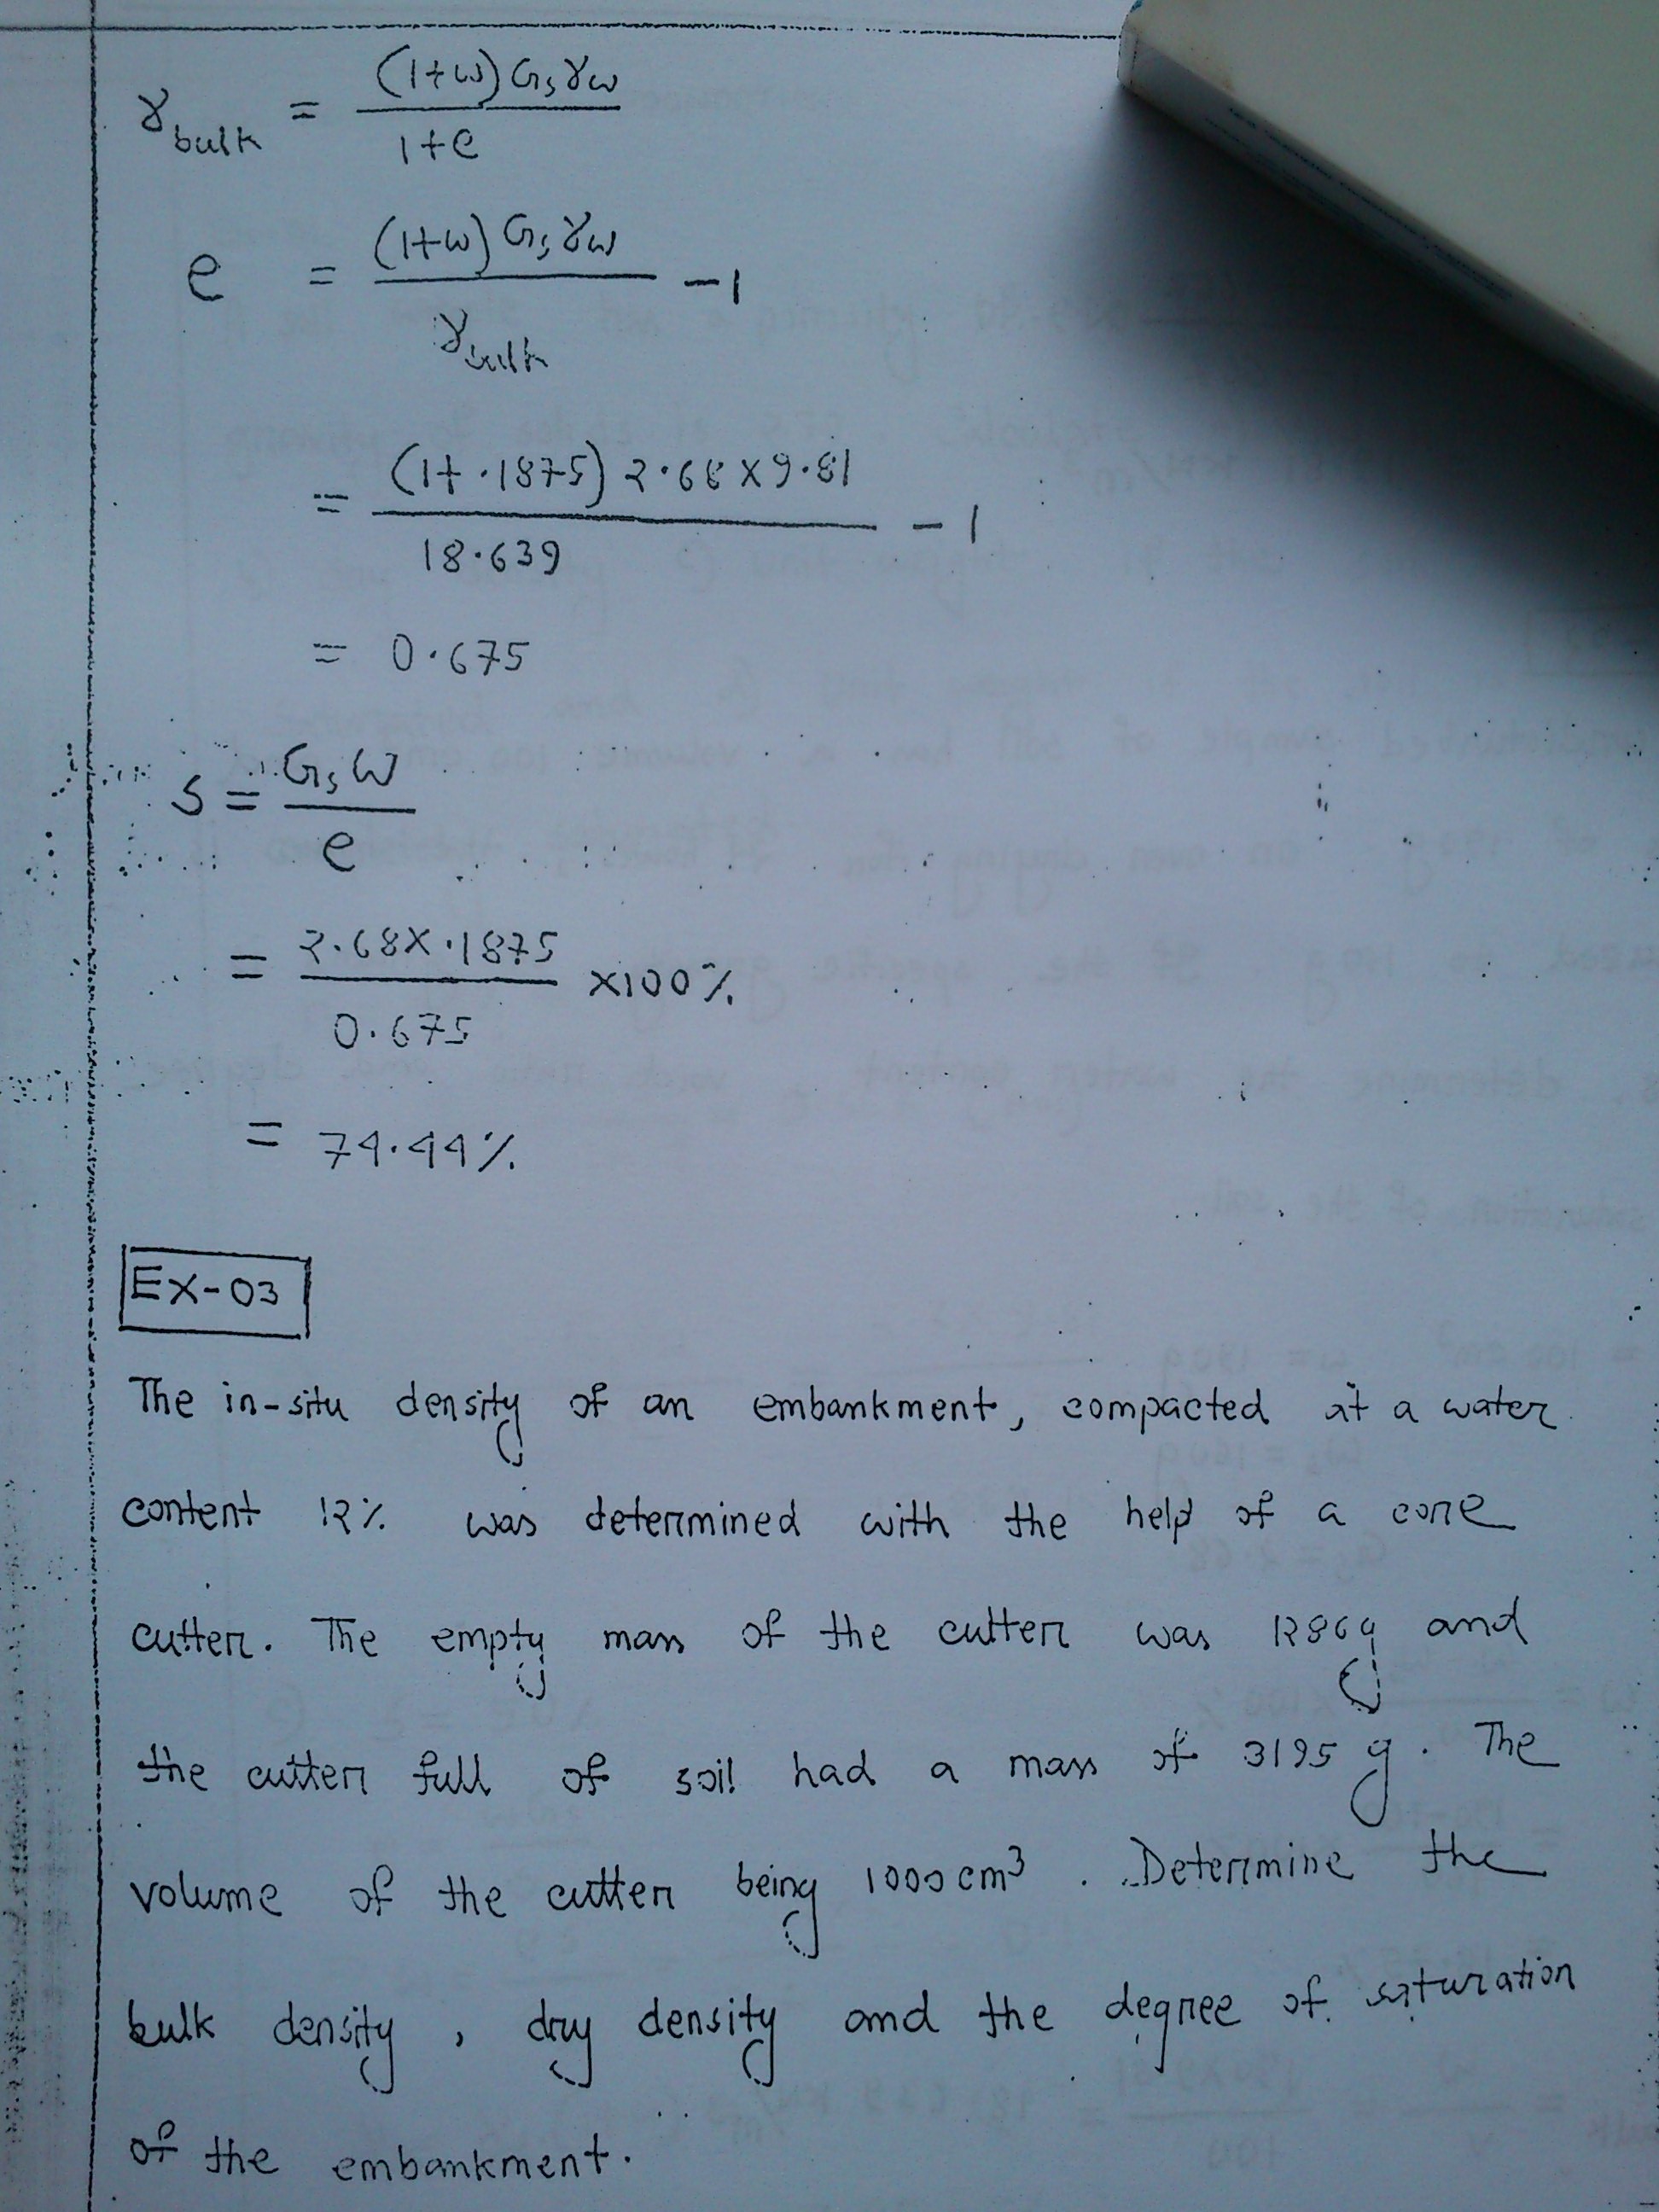 γbulk = (1+w) Gs γw / 1+e
e = (1+w) Gs γw / γbulk - 1
= (1+.1875) 2.68 x 9.81 / 18.639 - 1
= 0.675
S = Gs w / e
= 2.68 x .1875 / 0.675 x 100%
= 74.44%
EX-03
The in-situ density of an embankment, compacted at a water
content 12% was determined with the help of a core
cutter. The empty mass of the cutter was 1286g and
the cutter full of soil had a mass of 3195 g. The
volume of the cutter being 1000 cm³. Determine the
bulk density, dry density and the degree of saturation
of the embankment.